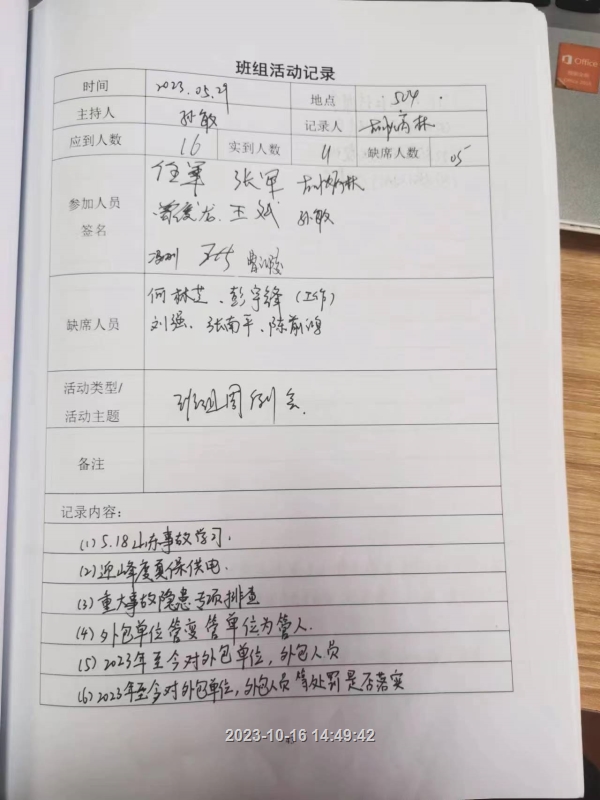 班组活动记录
时间 2023.05.29 地点 504.
主持人 孙敏 记录人
应到人数 16 实到人数 11 缺席人数 05
参加人员 任军 张军
签名 曾俊龙 王斌 孙敏
缺席人员 何林芝、彭宇锋(工作)
刘强、张南平、陈前鸿
活动类型/
活动主题 班组周例会.
备注
记录内容:
(1) 5.18山东事故学习.
(2) 迎峰度夏保供电.
(3) 重大事故隐患专项排查
(4) 外包单位管变管单位为管人.
(5) 2023年至今对外包单位,外包人员
(6) 2023年至今对外包单位,外包人员等处罚是否落实
2023-10-16 14:49:42
Office